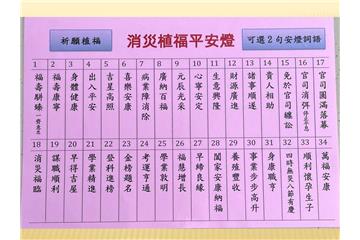 祈願植福
消災植福平安燈
可選2句安燈詞語
1 福壽駢臻
2 福壽康寧
3 身體健康
4 出入平安
5 吉星高照
6 喜樂安康
7 病業障消除
8 廣納百福
9 元辰光采
10 心寧安定
11 生意興隆
12 財源廣進
13 諸事順遂
14 貴人相助
15 免於官司纏訟
16 官司消弭
17 官司圓滿落幕
18 消災福臨
19 謀職順利
20 早得吉屋
21 學業精進
22 登科進榜
23 金榜題名
24 考運亨通
25 學業敦明
26 福慧增長
27 早締良緣
28 闔家安康納福
29 養殖豐收
30 事業步步高升
31 身康職亨
32 四時無災八節有慶
33 順利懷孕生子
34 萬福安康